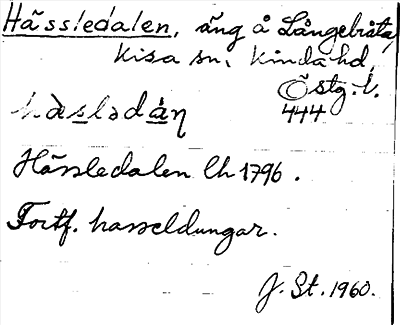 Hässledalen, äng å Långebråta,
Kisa sn, Kinda hd,
Östg. l.
444
hàslədán
Hässledalen lh 1796.
Fortf. hasseldungar.
J. St. 1960.